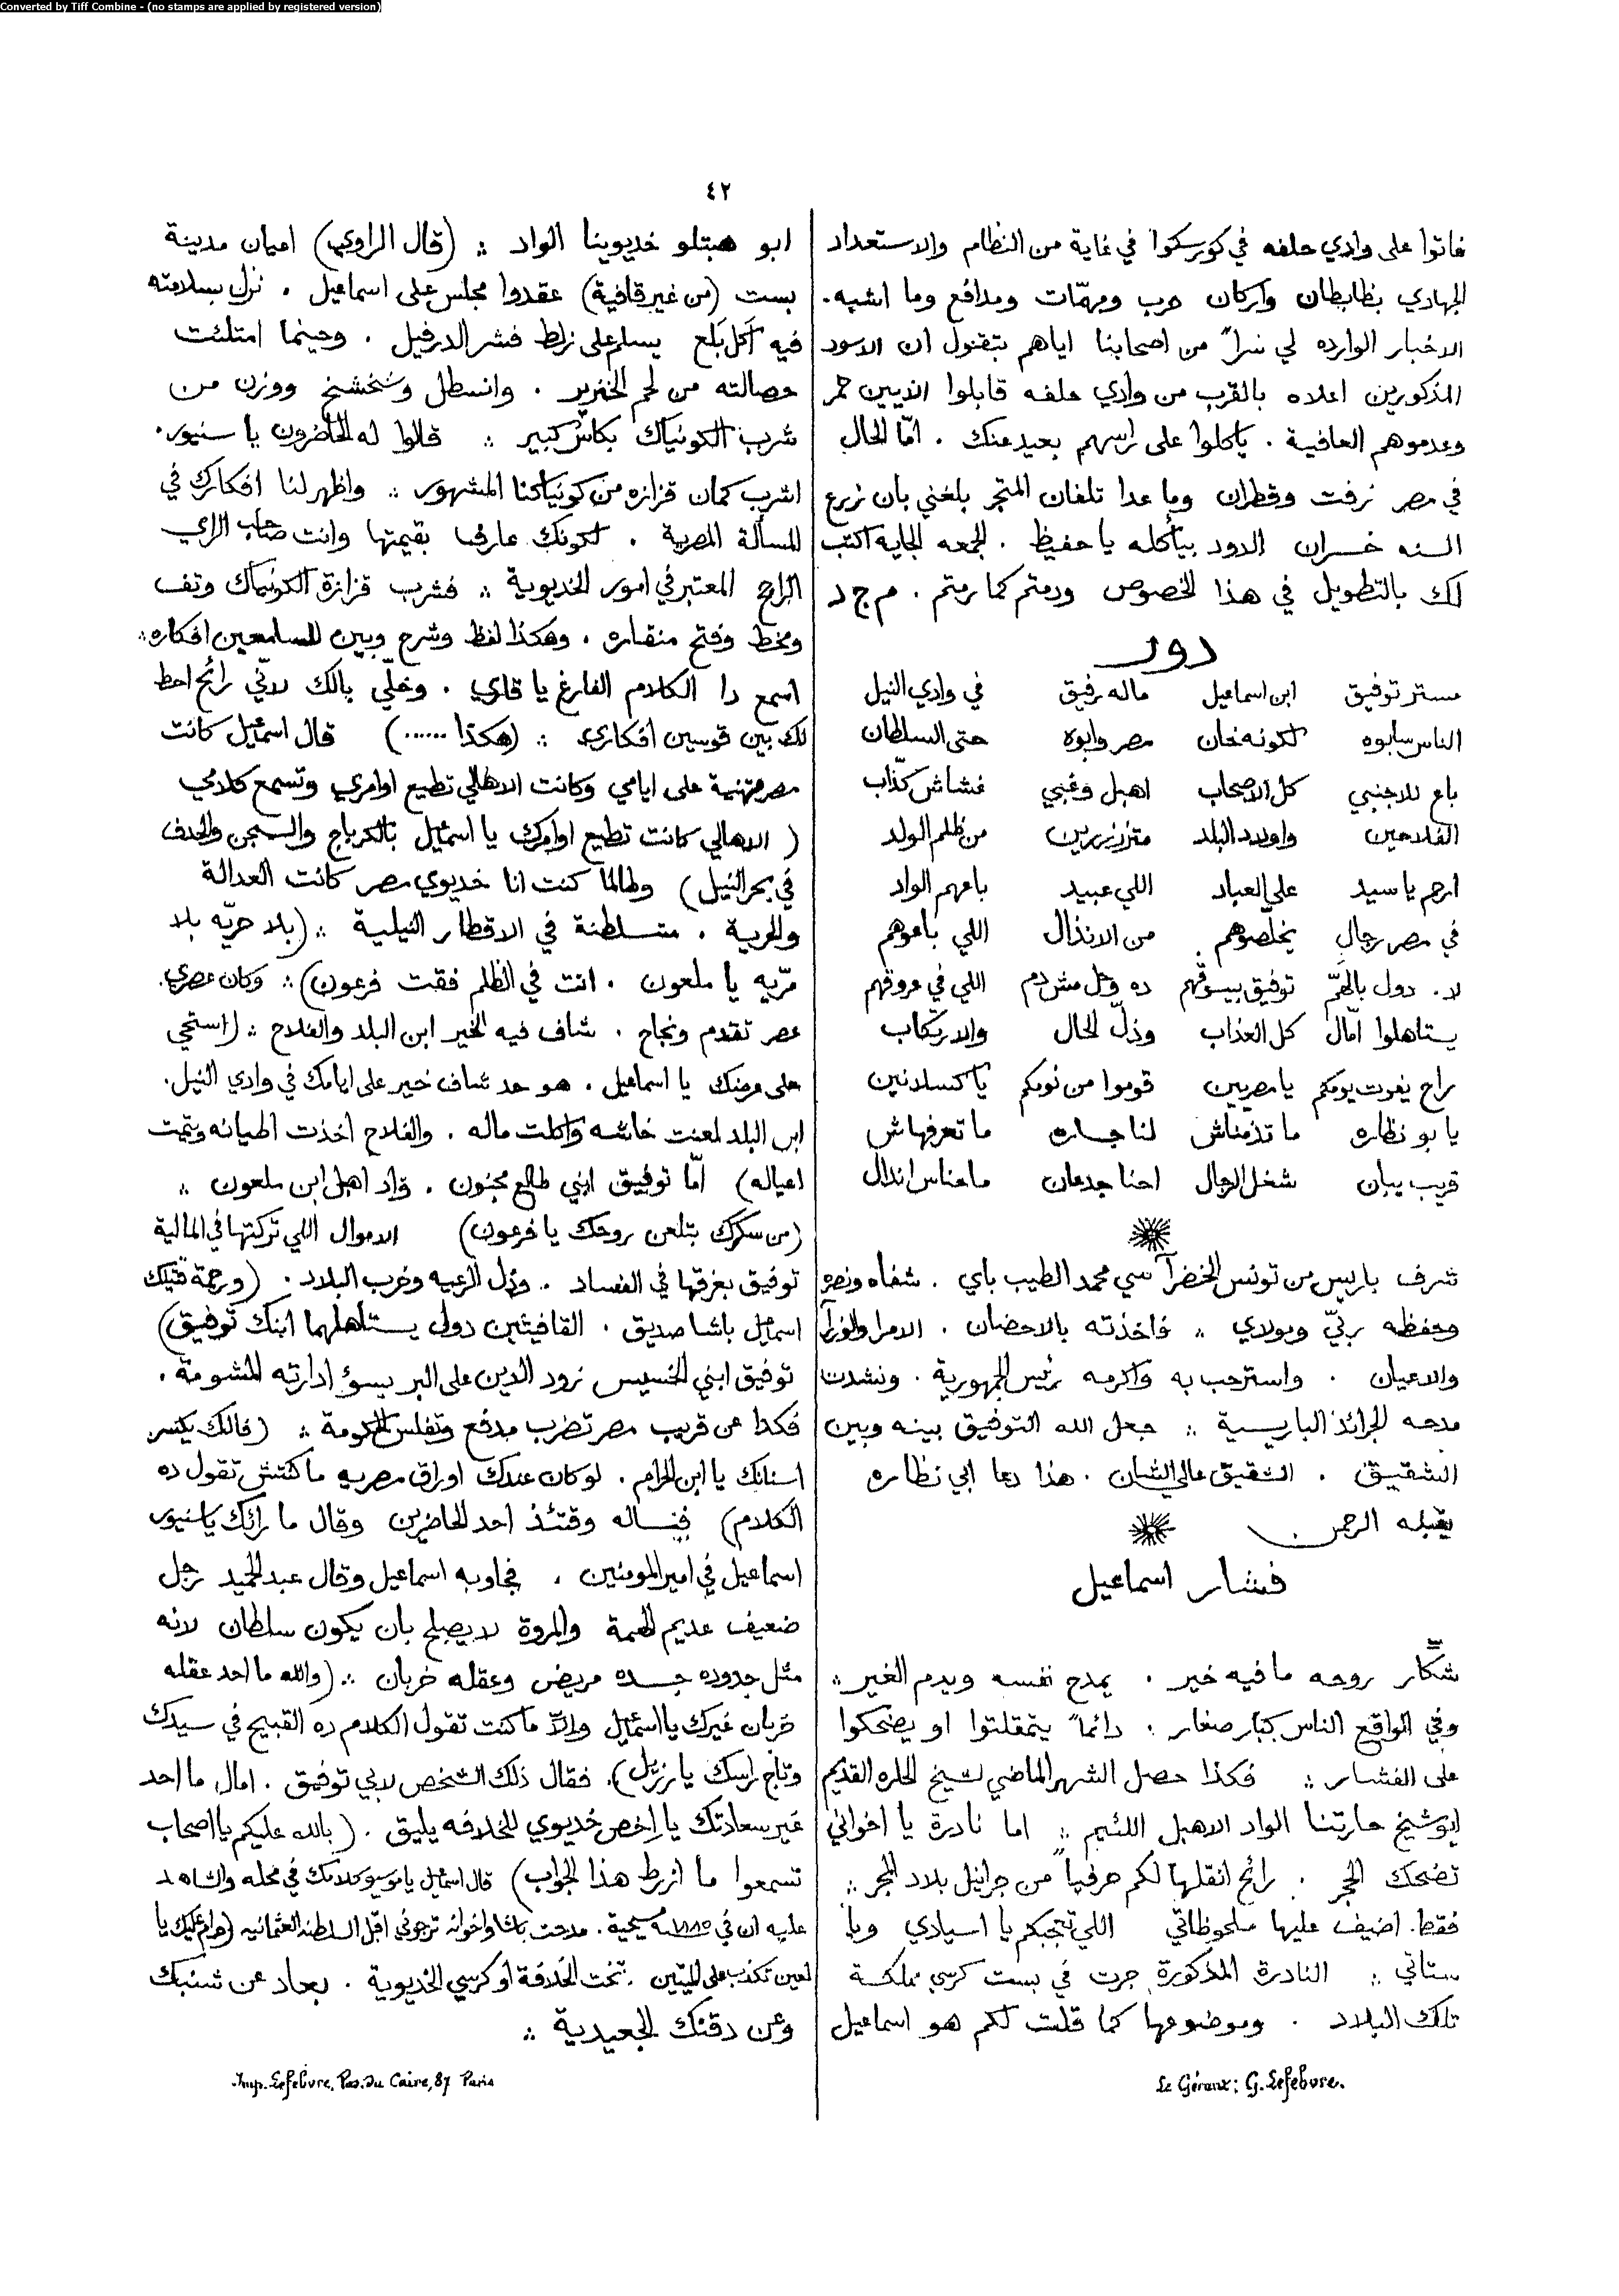 Converted by Tiff Combine - (no stamps are applied by registered version)
٤٢
فاتوا على وادي حلفه في كورسكوا في غاية من النظام والاستعداد
الجهادي بظابطان واركان حرب ومهمّات ومدافع وما اشبه.
الاخبار الوارده لي سراً من اصحابنا اياهم بتقول ان الاسود
المذكورين اعلاه بالقرب من وادي حلفه قابلوا الديبين حمر
وعدموهم العافية. ياكلوا على راسهم بعيد عنك. امّا الحال
في مصر زفت وقطران وما عدا تلفان المتجر بلغني بان زرع
السنه خسران الدود بيأكله يا حفيظ. الجمعه الجايه اكتب
لك بالتطويل في هذا الخصوص ودمتم كما رمتم. م ج د
دور
مستر توفيق ابن اسماعيل ماله رفيق في وادي النيل
الناس سابوه لكونه خان مصر وابوه حتى السلطان
باع للاجنبي كل الاصحاب اهبل وغبي فشاش كذّاب
الفلاحين واولاد البلد متزنزرين من ظلم الولد
ارحم يا سيد على العباد اللي عبيد باعهم الواد
في مصر رجال يخلّصوهم من الانذال اللي باعوهم
لا. دول بالهَمّ توفيق بيسوقهم ده وحل مش دم اللي في عروقهم
يستاهلوا امّال كل العذاب وذلّ الحال والارتكاب
راح يفوت يومكم يا مصريين قوموا من نومكم يا كسلانين
يا بو نظاره ما تذمناش لنا جساره ما تعرفهاش
قريب يبان شغل الرجال احنا جدعان ما حناس اندال
شرف باريس من تونس الخضرآ سي محمد الطيب باي. شفاه ونصره
وحفظه ربيّ ومولاي ⁖ فاخذته بالاحضان. الامرا والوزرآ
والاعيان. واسترحب به واكرمه رئيس الجمهورية. ونشدت
مدحه الجرائد الباريسية ⁖ جعل الله التوفيق بينه وبين
الشقيق. الشقيق عالي الشان. هذا دعا ابي نظاره
يقبله الرحمن.
فشار اسماعيل
شكّار روحه ما فيه خير. يمدح نفسه ويدم الغير ⁖
وفي الواقع الناس كبار صغار. دائماً يتمقلتوا او يضحكوا
على الفشار ⁖ فكذا حصل الشهر الماضي لشيخ الحاره القديم
ابو شيخ حارتنا الواد الاهبل اللئيم ⁖ اما نادرة يا اخواني
تضحك الحجر. رائح انقلها لكم حرفياً من جرانيل بلاد المجر ⁖
فقط. اضيف عليها ملحوظاتي اللي تعجبكم يا اسيادي ويا
ستاتي ⁖ النادرة المذكورة جرت في بست كرسي مملكة
تلك البلاد. وموضوعها كما قلت لكم هو اسماعيل
Le Gérant: G. Lefebvre.
ابو هبتلو خديوينا الواد ⁖ (قال الراوي) اعيان مدينة
بست (من غير قافية) عقدوا مجلس على اسماعيل. نزل بسلامته
فيه اكَل بَلَع يسلم على زلط فشر الدرفيل. وحينما امتلئت
حصالته من لحم الخنزير. وانسطل وشخشخ ووزن من
شرب الكونياك بكاس كبير ⁖ قالوا له الحاضرون يا سنيور.
اشرب كمان قزازه من كونياكنا المشهور ⁖ واظهر لنا افكارك في
المسألة المصرية. لكونك عارف بقيمتها وانت صاحب الراي
الراجح المعتبر في امور الخديوية ⁖ فشرب قزازة الكونياك وتف
ومخط وفتح منقاره. وهكذا لفظ وشرح وبين للسامعين افكاره ⁖
اسمع دا الكلام الفارغ يا قاري. وخلّي بالك لانّي رائح احط
لك بين قوسين افكاري ⁖ (هكذا ......) قال اسمعيل كانت
مصر متهنية على ايامي وكانت الاهالي تطيع اوامري وتسمع كلامي
(الاهالي كانت تطيع اوامرك يا اسمعيل بالكرباج والسجن والحدف
في بحر النيل) وطالما كنت انا خديوي مصر كانت العدالة
والحرية. متسلطنة في الاقطار النيلية ⁖ (بلا حريّه بلا
مريّه يا ملعون. انت في الظلم فقت فرعون) ⁖ وكان عصري.
عصر تقدم ونجاح. شاف فيه الخير ابن البلد والفلاح ⁖ (استحي
على عرضك يا اسماعيل. هو حد شاف خير على ايامك في وادي النيل.
ابن البلد لعنت خاشه واكلت ماله. والفلاح اخذت اطيانه ويتمت
اعياله) امّا توفيق ابني طالع مجنون. واد اهبل ابن ملعون ⁖
(من سكرك بتلعن روحك يا فرعون) الاموال اللي تركتها في المالية
توفيق بغرقها في الفساد. وذل الرعيه وخرب البلاد. (ورحمة قتيلك
اسمعيل باشا صديق. القافيتين دولي يستاهلهما ابنك توفيق)
توفيق ابني الخسيس زود الدين على البر بسؤ ادارته المشومة.
فكدا عن قريب مصر تضرب مدفع وتفلس الحكومة ⁖ (فالك يكسر
اسنانك يا ابن الحرام. لو كان عندك اوراق مصريه ما كنتش تقول ده
الكلام) فسأله وقتئذ احد الحاضرين وقال ما رائك يا سنيور
اسماعيل في امير المومنين. فجاوبه اسماعيل وقال عبد الحميد رجل
ضعيف عديم الهمة والمروة لا يصلح بان يكون سلطان لانه
مثل جدوده جسده مريض وعقله خربان ⁖ (والله ما احد عقله
خربان غيرك يا اسمعيل والاّ ما كنت تقول الكلام ده القبيح في سيدك
وتاج راسك يا رزيل). فقال ذلك الشخص لابي توفيق. امال ما احد
غير سعادتك يا اخص خديوي للخلافه يليق. (بالله عليكم يا اصحاب
تسمعوا ما ازرط هذا الجواب) قال اسمعيل يا موسيو كلامك في محله والشاهد
عليه ان في سنة ١٨٨٥ مسيحية. مدحت باشا واخوانه ترجوني اقبل السلطنه العثمانيه (حرام عليك يا
لعين تكذب على الميّتين. تخت الخلافة او كرسي الخديوية. بعاد عن شنبك
وعن دقنك الجعيدية ⁖
Imp. Lefebvre, Pas. du Caire, 87 Paris